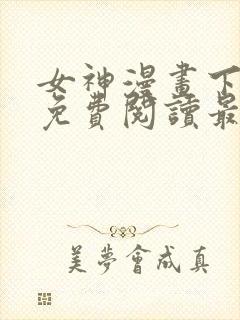 女神漫畫下
免費閱讀最
美夢會成真